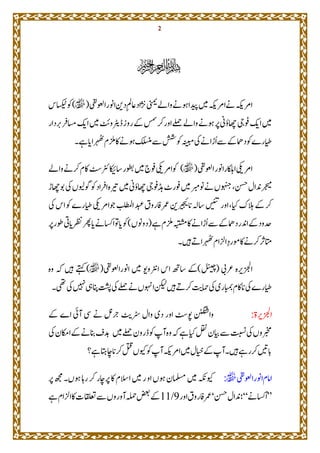 2
بسم اللہ الرحمن الرحیم
امریکہ نے امریکہ میں پیدا ہونے والے یمنی نژاد عالمِ دین انور العولقی (حفظہ اللہ) کو ایک سال
میں ایک فوجی چھاؤنی پر ہونے والے حملے اور کرسمس کے روز ڈیٹرائٹ میں ایک مسافر بردار
طیارے کو دھماکے سے اُڑانے کی مبینہ کوشش سے منسلک ہونے کا ملزم ٹھہرایا ہے۔
امریکی اہلکار انور العولقی (حفظہ اللہ) کو امریکی فوج میں بطور سائیکاٹرسٹ کام کرنے والے
میجر نضال حسن، جنہوں نے نومبر میں فورٹ ہڈ فوجی چھاؤنی میں تیرہ افراد کو گولیوں کی بوچھاڑ
کر کے ہلاک کر دیا، اور تئیس سالہ نائیجیرین عمر فاروق عبدالمطلب جو امریکی طیارے کو اس کی
حدود کے اندر دھماکے سے اُڑانے کا مشتبہ ملزم ہے (دونوں) کو یا تو اکسانے یا پھر نظریاتی طور پر
متاثر کرنے کا موردِ الزام ٹھہراتے ہیں۔
الجزیرہ عربی (چینل) کے ساتھ اس انٹرویو میں انور العولقی (حفظہ اللہ) کہتے ہیں کہ وہ
طیارے کی ناکام بمباری کی حمایت کرتے ہیں لیکن انہوں نے حملے کی پشت پناہی نہیں کی تھی۔
الجزیرۃ: واشنگٹن پوسٹ اور دی وال سٹریٹ جرنل نے سی آئی اے کے
مخبروں کی نسبت سے بیان نقل کیا ہے کہ وہ آپ کو ڈرون حملے میں ہدف بنانے کے امکان کی
باتیں کر رہے ہیں۔ آپ کے خیال میں امریکہ آپ کو کیوں قتل کرنا چاہتا ہے؟
امام انور العولقی حفظہ اللہ: کیونکہ میں مسلمان ہوں اور میں اسلام کا پرچار کر رہا ہوں۔ مجھ پر
"اکسانے"، "نضال حسن"، عمر فاروق اور 9/11 کے بعض حملہ آوروں سے تعلقات کا الزام ہے